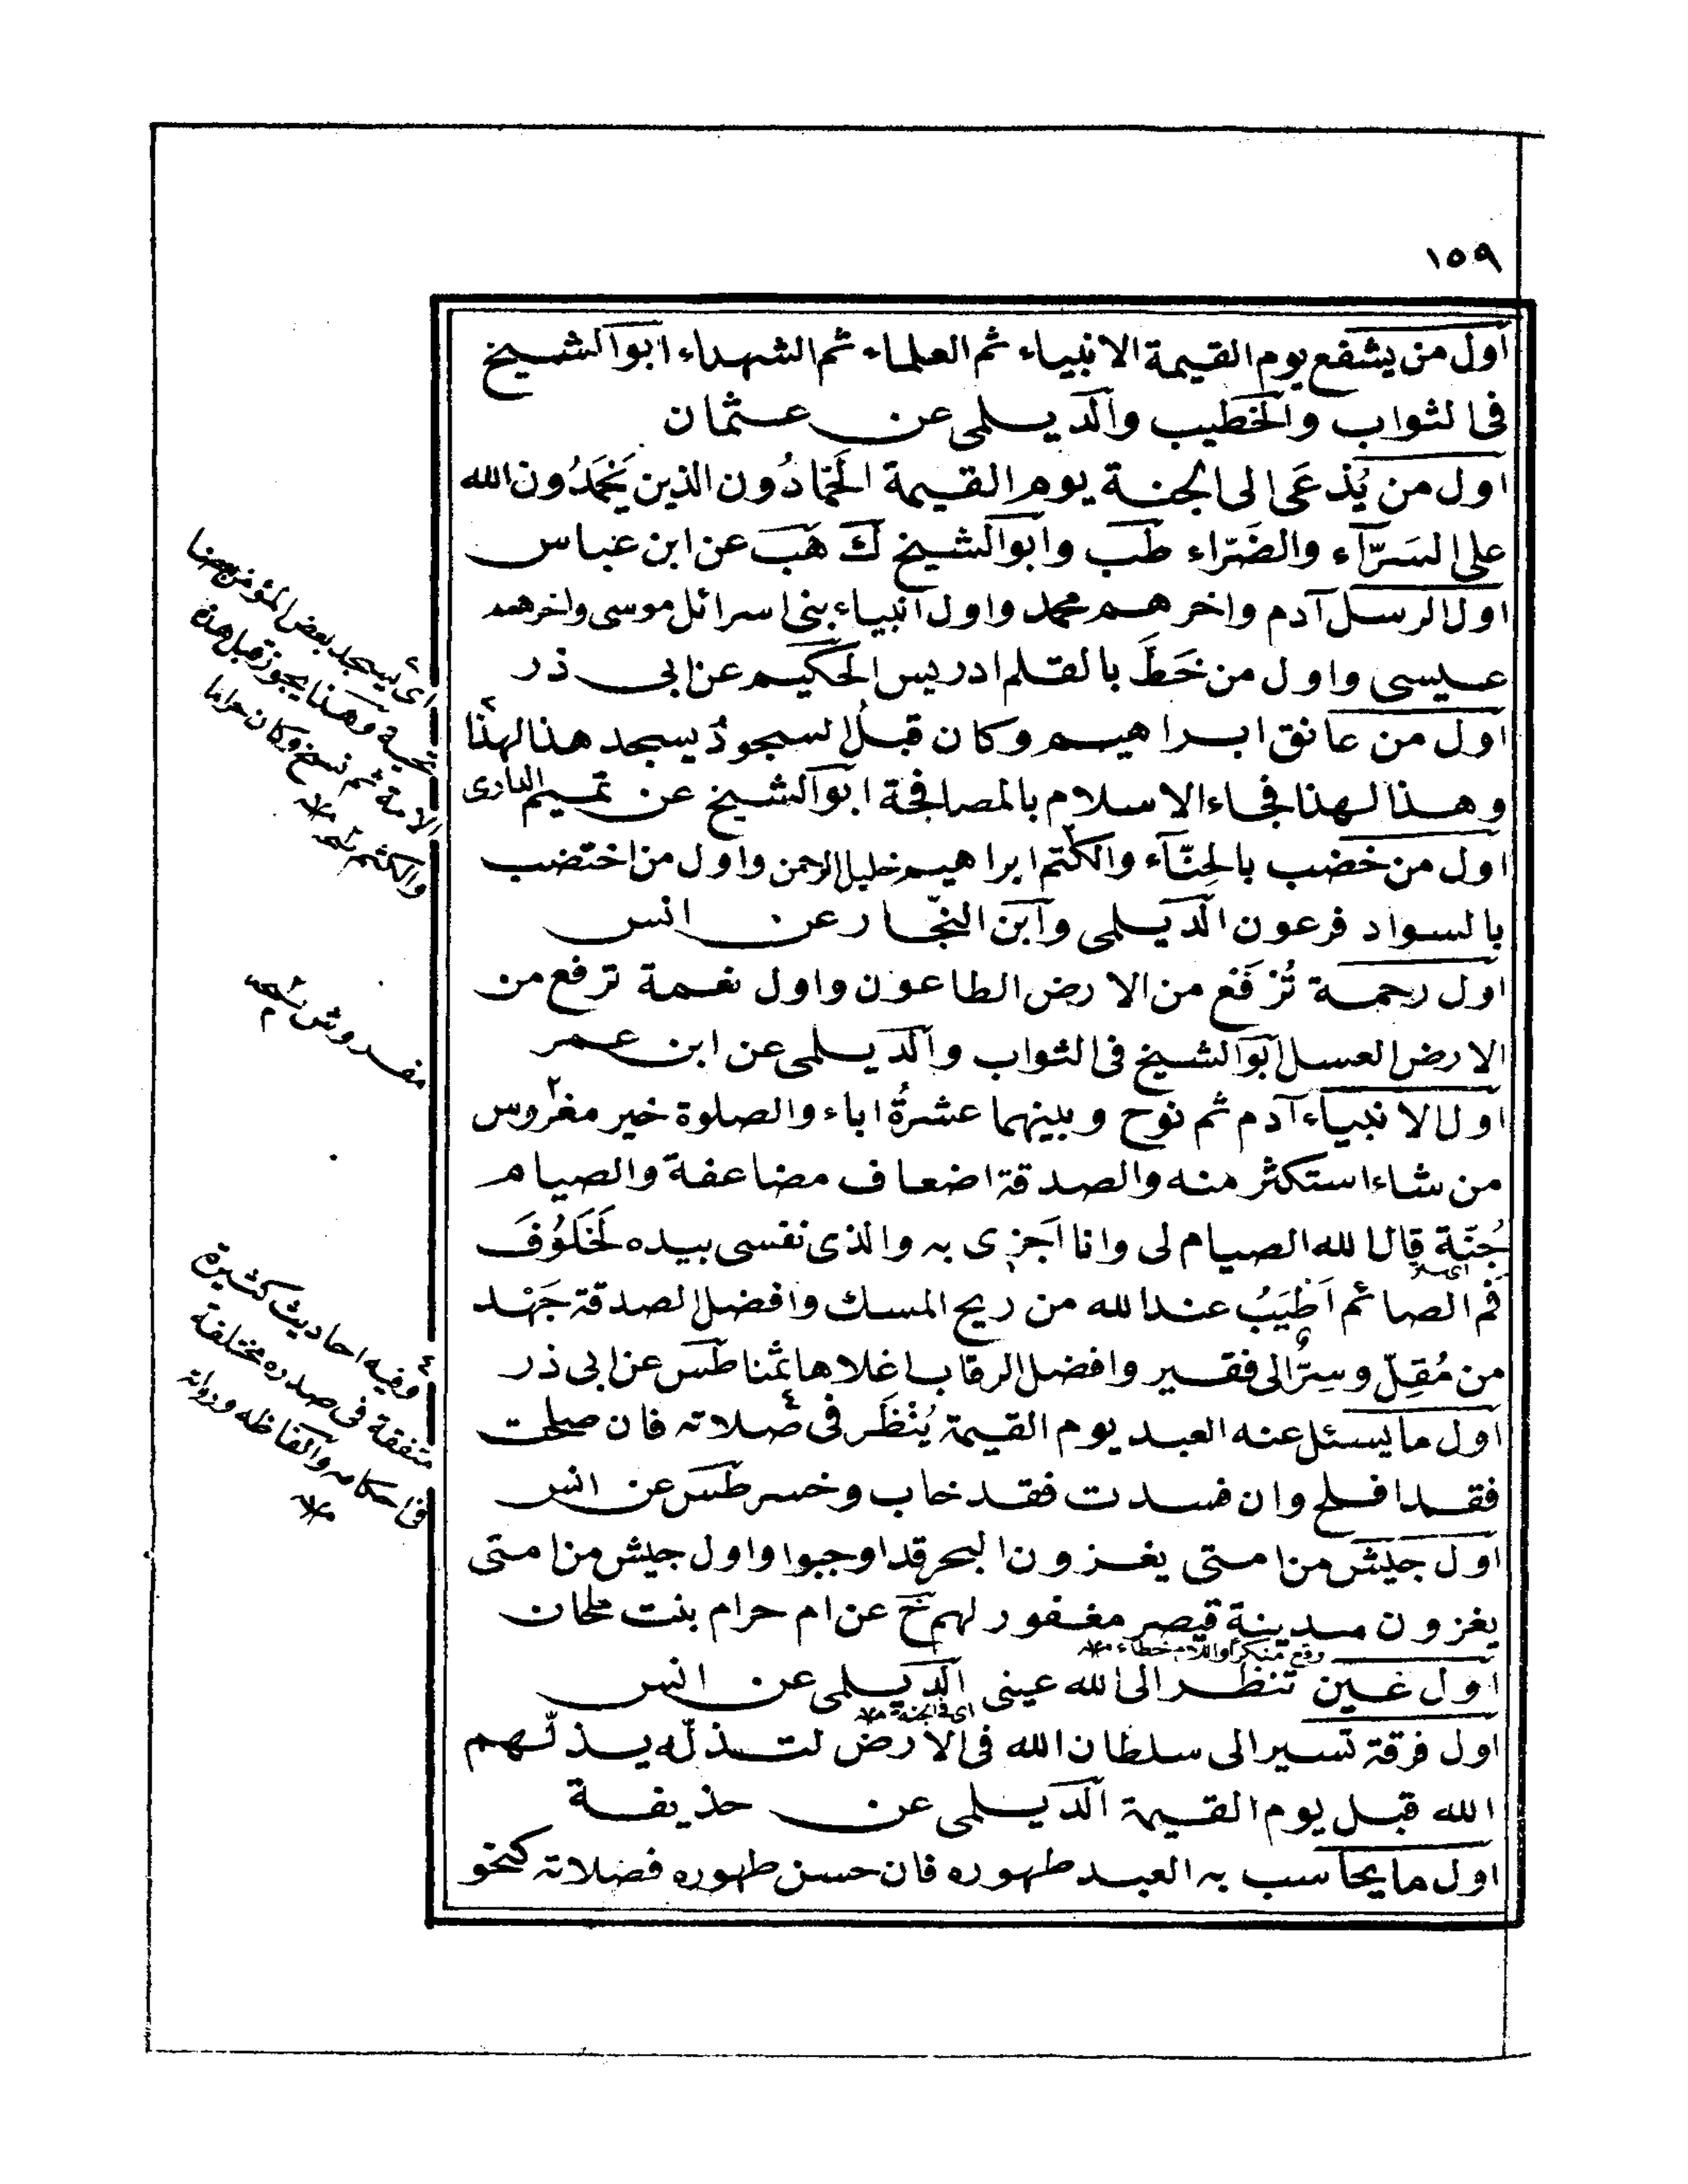 ١٥٩
اول من يشفع يوم القيمة الانبياء ثم العلماء ثم الشهداء ابوالشيخ
فى الثواب والخطيب والديلمى عن عثمان
اول من يُدْعَى الى الجنة يوم القيمة الحَمّادُون الذين يَحْمَدُون الله
على السَرّآء والضَرّاء طب وابوالشيخ ك هب عن ابن عباس
اول الرسل آدم واخرهم محمد واول انبياء بنى اسرائل موسى واخرهم
عيسى واول من خَطَّ بالقلم ادريس الحكيم عن ابى ذر
اول من عانق ابراهيم وكان قبل السجود يسجد هذا لهذا
وهذا لهذا فجاء الاسلام بالمصافحة ابوالشيخ عن تميم الدارى
اول من خضب بالحِنّآء والكتم ابراهيم خليل الرحمن واول من اختضب
بالسواد فرعون الديلمى وابن النجّار عن انس
اول رحمة تُرْفَع من الارض الطاعون واول نعمة ترفع من
الارض العسل ابوالشيخ فى الثواب والديلمى عن ابن عمر
اول الانبياء آدم ثم نوح وبينهما عشرةُ اباء والصلوة خير مغروس
من شاء استكثر منه والصدقة اضعاف مضاعفة والصيام
جُنّة قال الله الصيام لى وانا اَجزى به والذى نفسى بيده لَخَلُوُفَ
فم الصائم اَطْيَبُ عند الله من ريح المسك وافضل الصدقة جَهْد
من مُقِلّ وسِرٌّ الى فقير وافضل الرقاب اغلاها ثمنا طس عن ابى ذر
اول ما يسئل عنه العبد يوم القيمة يُنْظَر فى صلاته فان صلحت
فقد افلح وان فسدت فقد خاب وخسر طس عن انس
اول جيش من امتى يغزون البحر قد اوجبوا واول جيش من امتى
يغزون مدينة قيصر مغفور لهم خ عن ام حرام بنت ملحان
وقع منكرا واللام خطاء
اول عين تنظر الى الله عينى الديلمى عن انس
اى فى الجنة
اول فرقة تسير الى سلطان الله فى الارض لتذلّه يذلّهم
الله قبل يوم القيمة الديلمى عن حذيفة
اول ما يحاسب به العبد طهوره فان حسن طهوره فصلاته كنحو
اى يسجد بعض المؤمن بعضا
تحية وهذا يجوز قبل هذه
الامة ثم نسخ وكان حراما
والكثم
مفدوش نسخه
وفيه احاديث كثيرة
متفقة فى صدره مختلفة
فى احكامه والفاظه ورواته